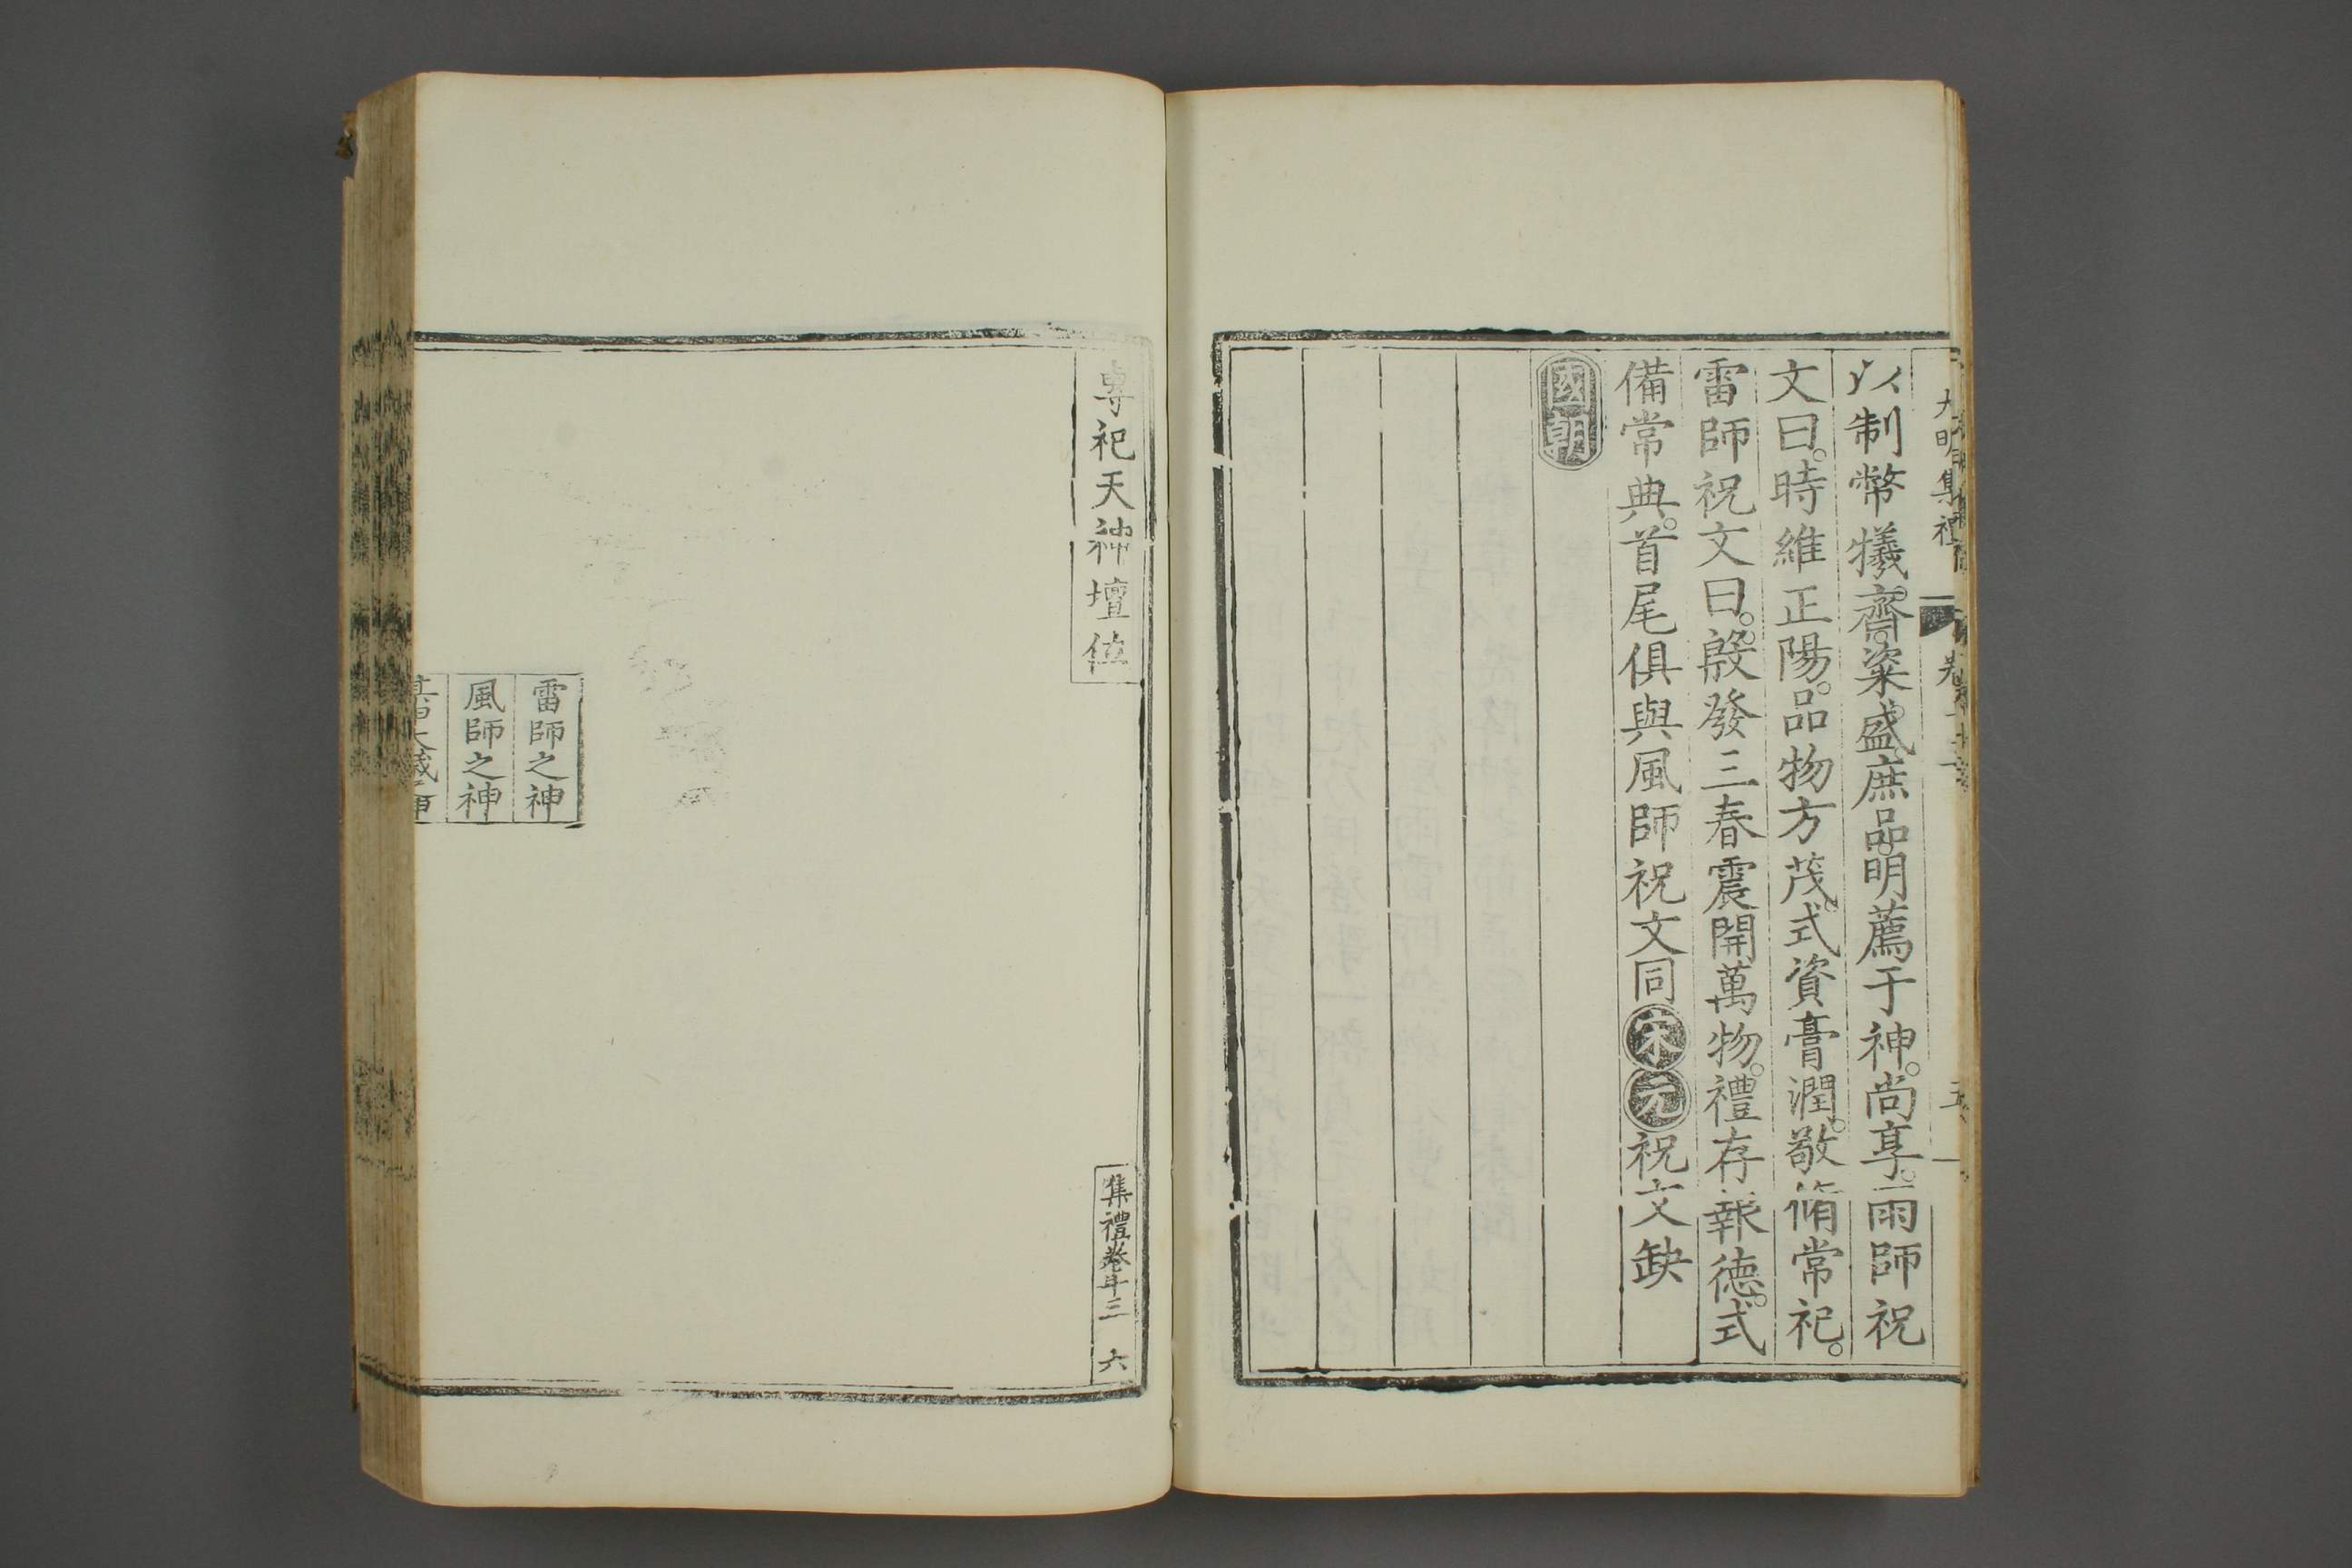 大明集禮
五
以制幣犧齊。粢盛。庶品。明薦于神。尚享。雨師祝
文曰。時維正陽。品物方茂。式資膏潤。敬脩常祀。
雷師祝文曰。殷發三春。震開萬物。禮存報德。式
備常典。首尾俱與風師祝文同宋元祝文缺
國朝
專祀天神壇位
集禮卷十三 六
雷師之神
風師之神